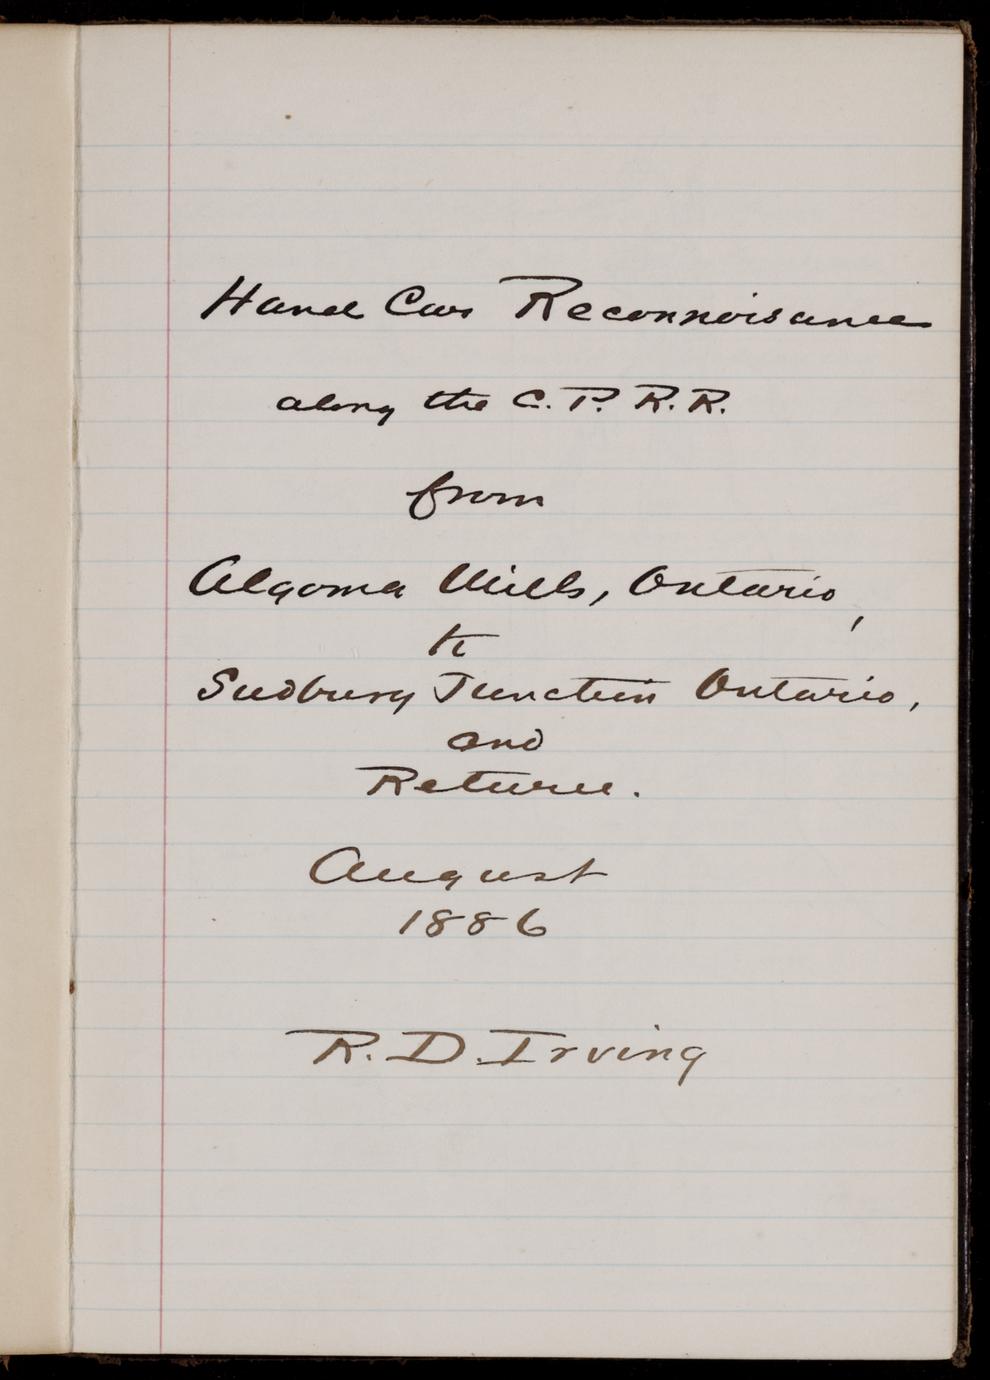 Hand Car Reconnoisance
along the C. P. R. R.
from
Algoma Mills, Ontario,
to
Sudbury Junction Ontario,
and
Return.
August
1886
R. D. Irving